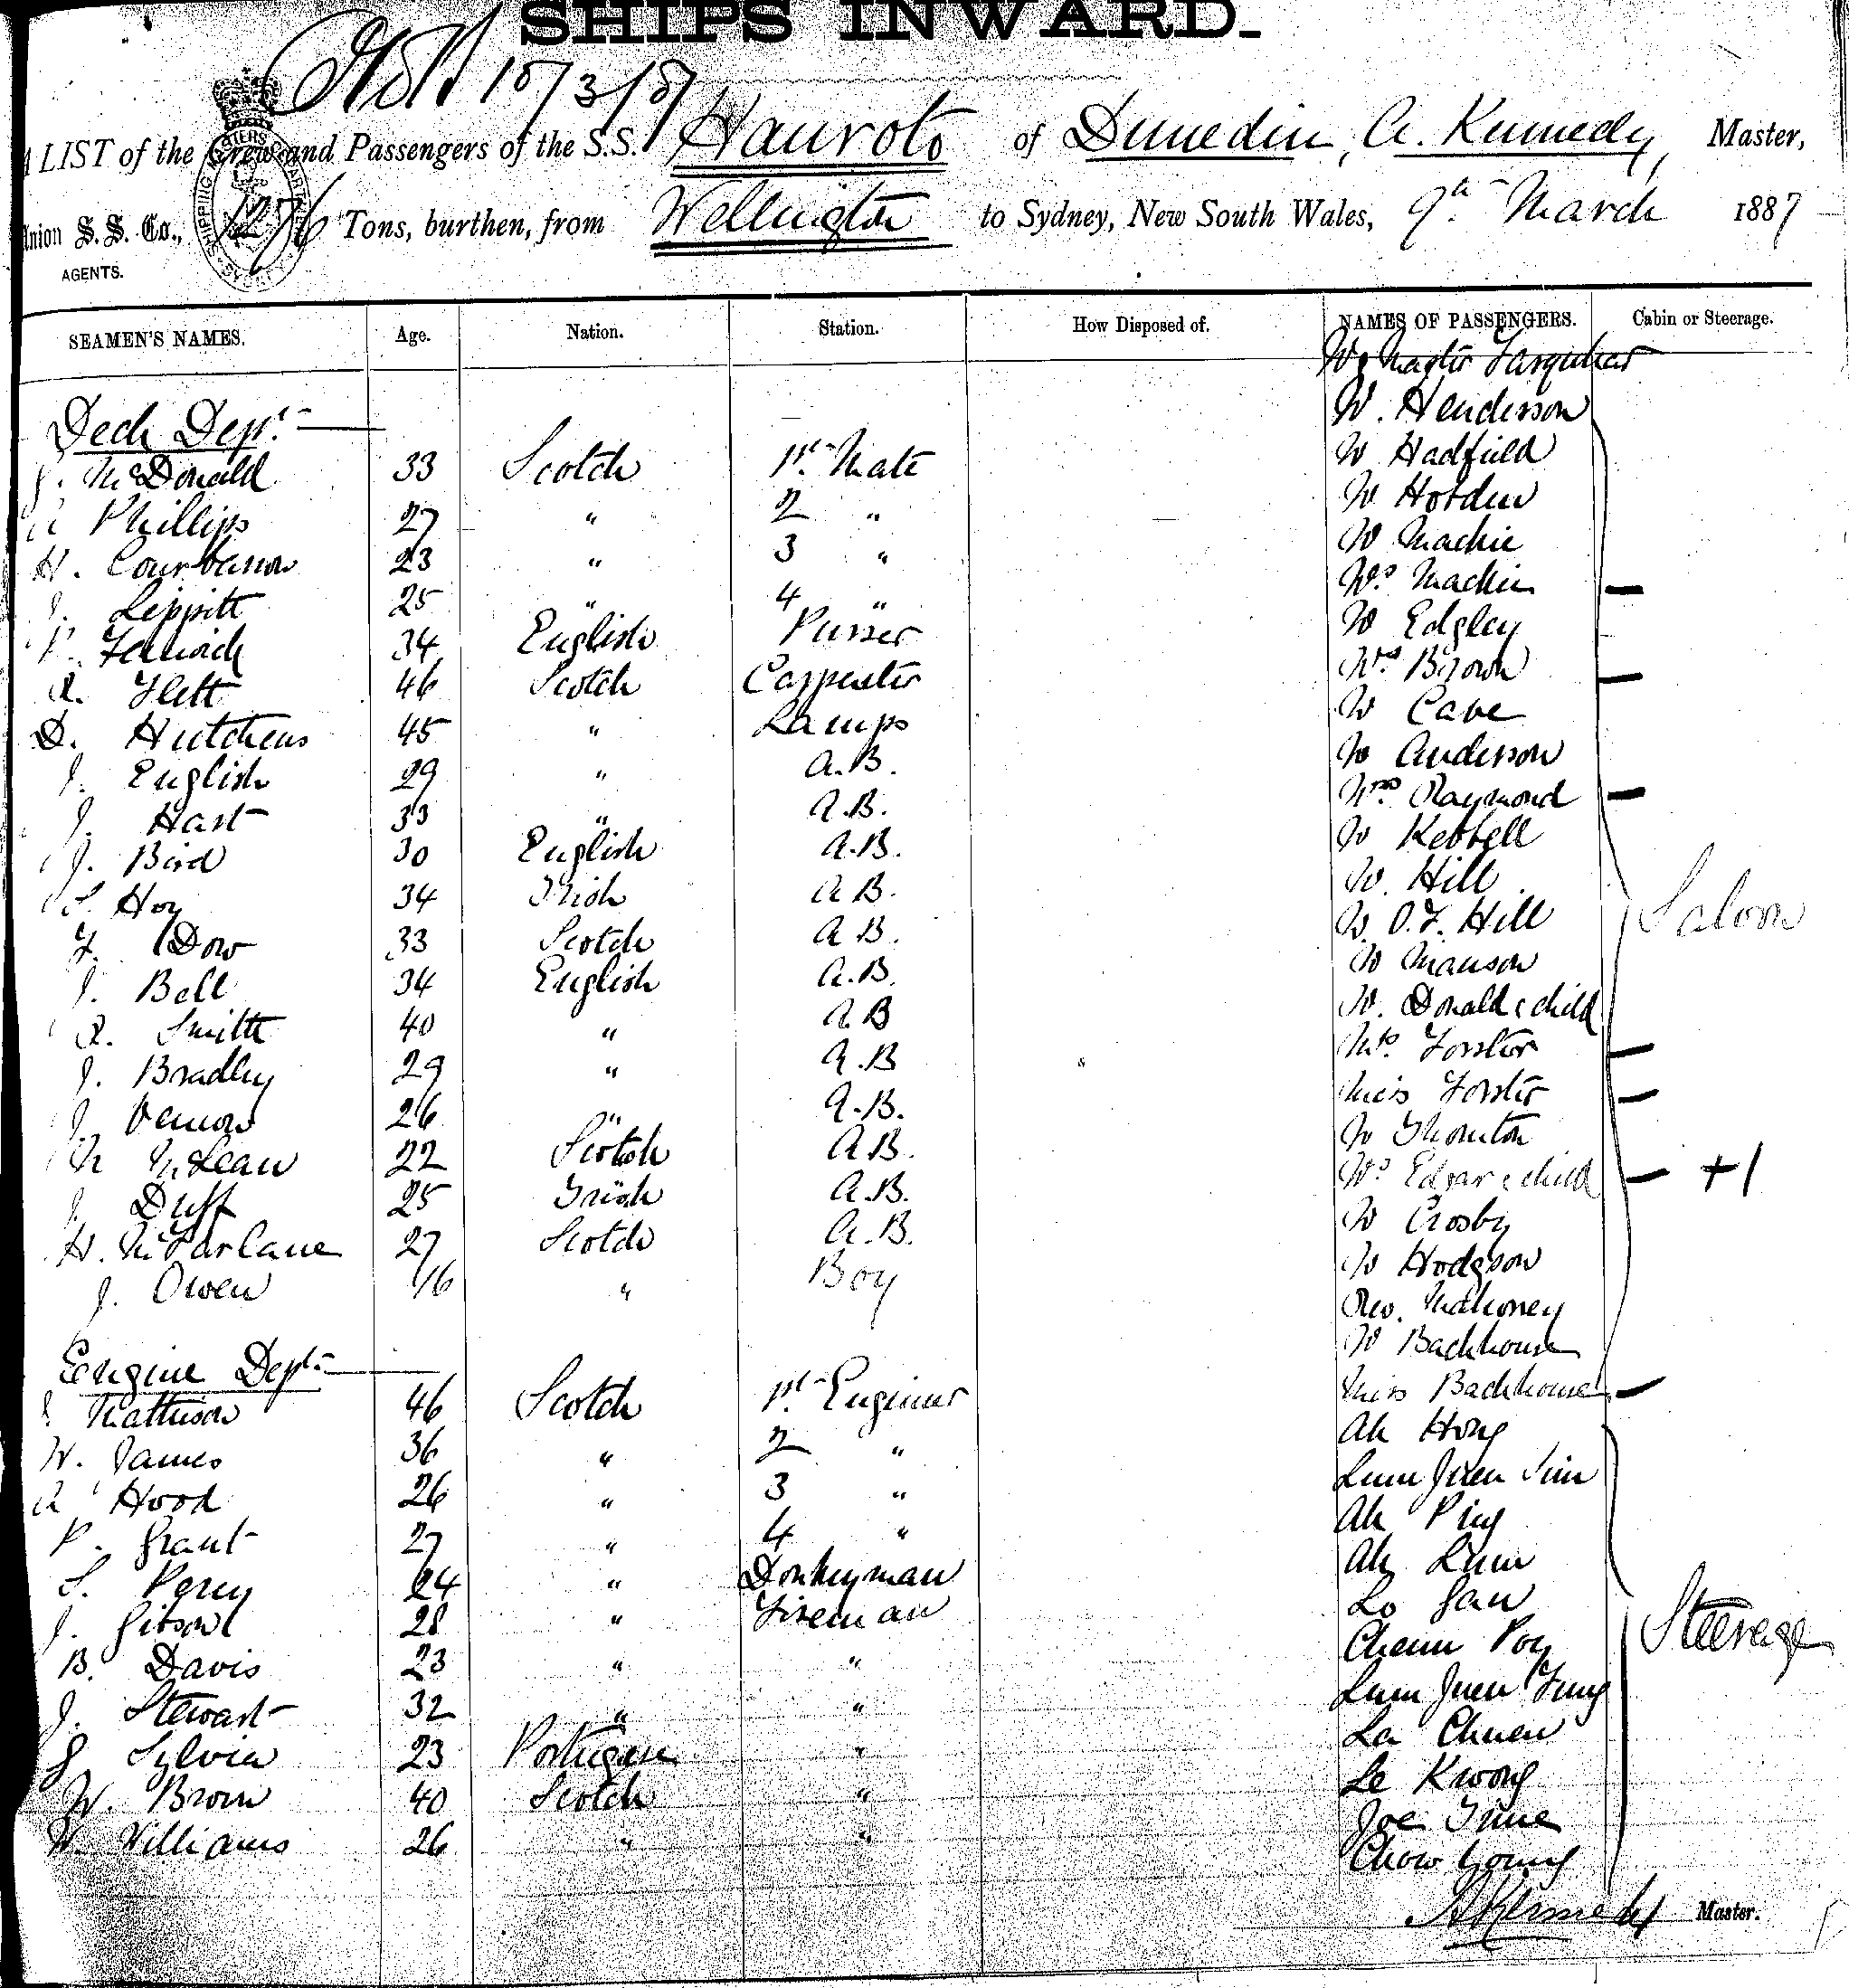 SHIPS INWARD.
15/3/87
A LIST of the Crew and Passengers of the S.S. Hauroto of Dunedin, A. Kennedy, Master,
Union S. S. Co., 1276 Tons, burthen, from Wellington to Sydney, New South Wales, 9th March 1887
AGENTS.
SEAMEN'S NAMES. Age. Nation. Station. How Disposed of. NAMES OF PASSENGERS. Cabin or Steerage.
Master Farquhar
Deck Dept. M Henderson
J. McDonald 33 Scotch 1st Mate Mr Hadfield
A Phillips 27 " 2 " Mr Hordern
H. 23 " 3 " Mr Mackie
J. Lippitt 25 " 4 " Mrs Mackie
P. Fenwick 34 English Purser Mr Edgley
A. Flett 46 Scotch Carpenter Mrs Brown
D. Hutchens 45 " Lamps Mr Cave
J. English 29 " A.B. Mr Anderson
J. Hart 33 " A.B. Mrs Raymond
J. Bird 30 English A.B. Mr Kebbell
S. Hoy 34 Irish A.B. Mr Hill
F. Dow 33 Scotch A.B. Mr O.F. Hill Saloon
J. Bell 34 English A.B. Mr Manson
A. Smith 40 " A.B Mr Donald & child
J. Bradley 29 " A.B Mrs Forster
J. Vernon 26 " A.B. Miss Forster
N McLean 22 Scotch A.B. Mr Thornton
J. Duff 25 Irish A.B. Mrs Edgar & child +1
H. McFarlane 27 Scotch A.B. Mr Crosby
J. Owen 16 " Boy Mr Hodgson
Rev. Mahoney
Engine Dept. Mr Backhouse
Mathison 46 Scotch 1st Engineer Miss Backhouse
W. James 36 " 2 " Ah Hong
A Hood 26 " 3 " Lum Juen Sim
P. Grant 27 " 4 " Ah Ping
S. Percy 24 " Donkeyman Ah Lum
J. Gibson 28 " Fireman Lo Gan
B. Davis 23 " " Chenn Poy Steerage
J. Stewart 32 " " Lum Juen Fung
J Sylvia 23 Portugese " La Chuen
W. Brown 40 Scotch " Le Kwong
W. Williams 26 " " Joe
Chow Young
A Kennedy Master.